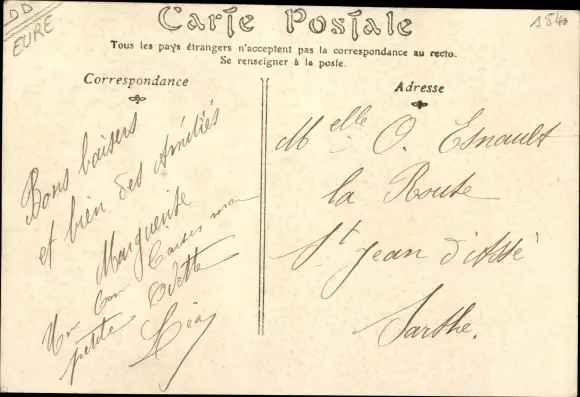 DD
EURE
1840
Carte Postale
Tous les pays étrangers n'acceptent pas la correspondance au recto.
Se renseigner à la poste.
Correspondance
Bons baisers
et bien des Amitiés
Marguerite
Un bon baiser ma
petite Odette
Léa
Adresse
Melle O. Esnault
la Route
St Jean d'Assé
Sarthe.